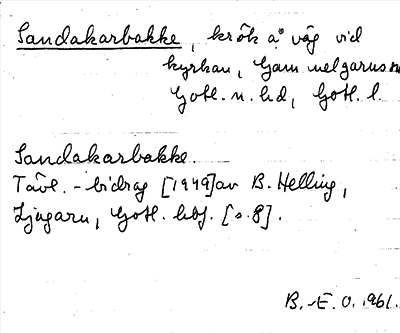 Sandakarbakke, krök å väg vid
kyrkan, Gammelgarns sn
Gotl. n. hd, Gotl. l.
Sandakarbakke.
Tävl.-bidrag [1949] av B. Helling,
Ljugarn, Gotl. hbf. [s. 8].
B.-E. O. 1961.